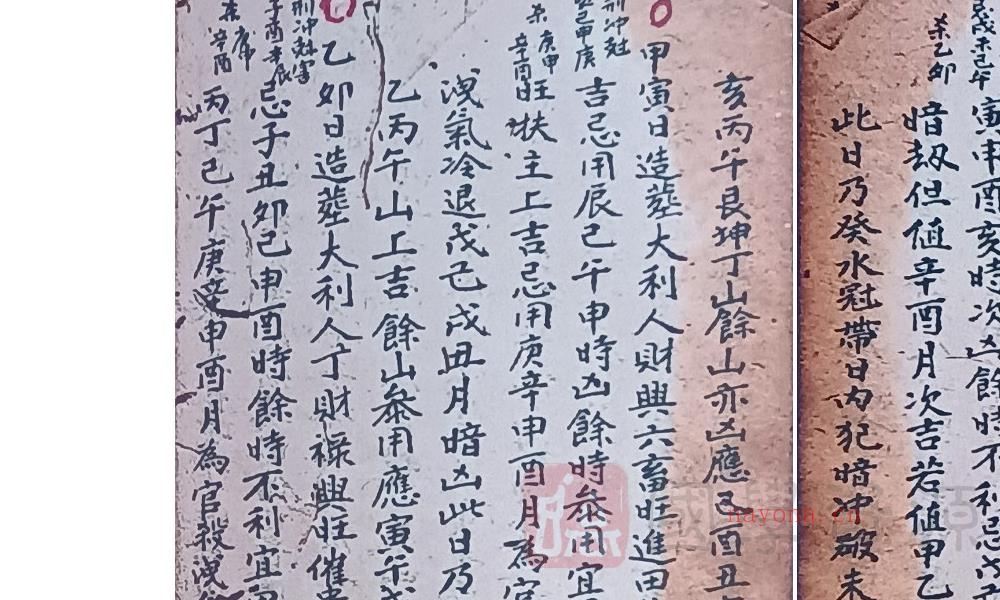 寅申酉亥時次凶餘時不利忌戊
暗劫但值辛酉月次吉若值甲乙
殺乙卯
此日乃癸水冠帶日內犯暗冲破未
亥丙午艮坤丁山餘山亦凶應己酉丑
甲寅日造葬大利人財興六畜旺進田
刑冲尅
吉忌用辰己午申時凶餘時叅用宜
庚申
辛酉
旺扶主上吉忌用庚辛申酉月為官
洩氣冷退戊己戌丑月暗凶此日乃
乙丙午山上吉餘山叅用應寅午戌
乙卯日造葬大利人丁財祿興旺催
刑冲尅害
忌子丑卯己申酉時餘時不利宜
辛酉
丙丁己午庚辛申酉月為官殺洩
nayona.cn